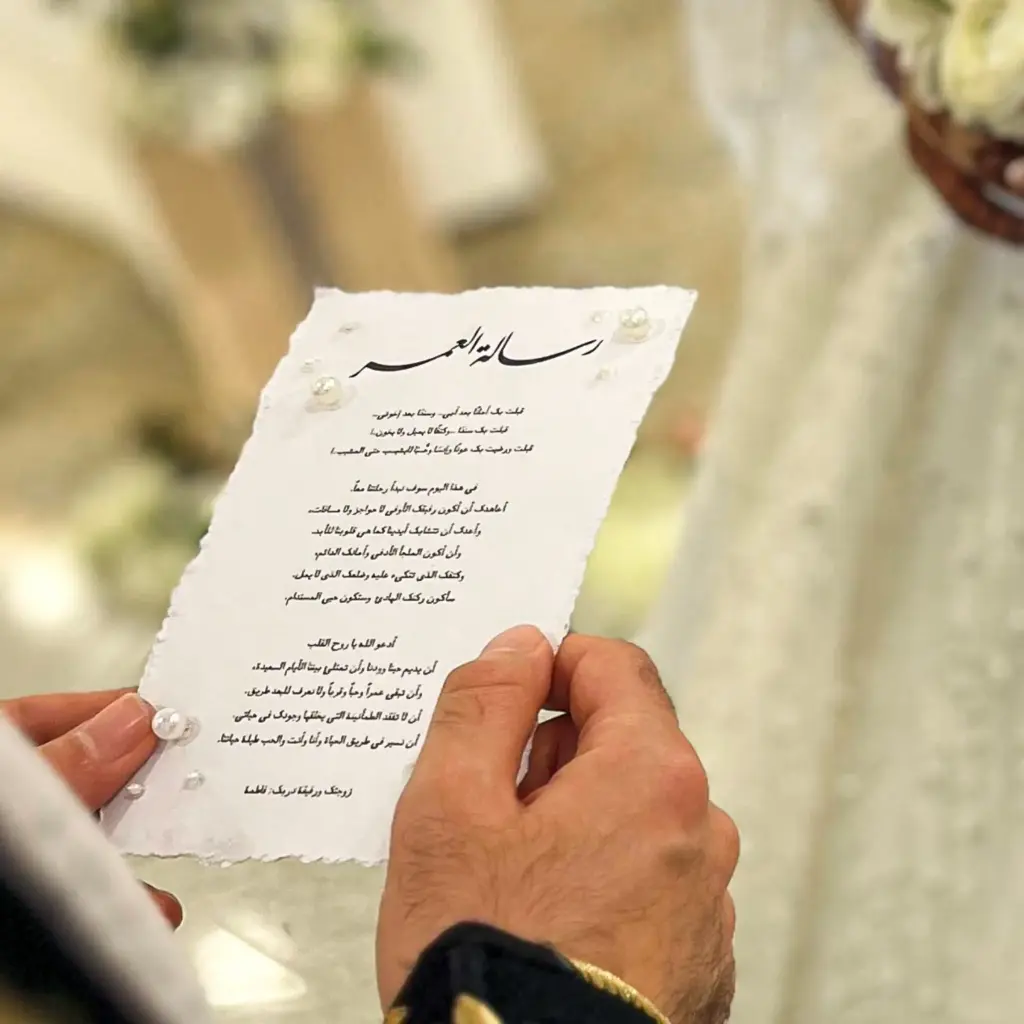 رسالة العمر
قبلت بك أمانًا بعد أبي.. وسندًا بعد إخوتي..
قبلت بك سندًا ..وكتفًا لا يميل ولا يخون..!
قبلت ورضيت بك عونًا وأُنسًا وحُبًا للمشيب حتى المشيب..!
في هذا اليوم سوف نبدأ رحلتنا معاً.
أعاهدك أن أكون رفيقك الأوفى لا حواجز ولا مسافات،
وأعدك أن تتشابك أيدينا كما هي قلوبنا للأبد.
وأن أكون الملجأ الأدفى وأمانك الدائم،
وكتفك الذي تتكيء عليه وضلعك الذي لا يمل.
سأكون ركنك الهادئ وستكون حبي المستدام.
أدعو الله يا روح القلب
أن يديم حبنا وودنا وأن تمتلئ بيننا الأيام السعيدة،
وأن نبقى عمراً وحباً وقرباً ولا نعرف للبعد طريق.
أن لا نفقد الطمأنينة التي يخلقها وجودك في حياتي.
أن نسير في طريق الحياة وأنا وأنت والحب طيلة حياتنا.
زوجتك ورفيقة دربك: فاطمة